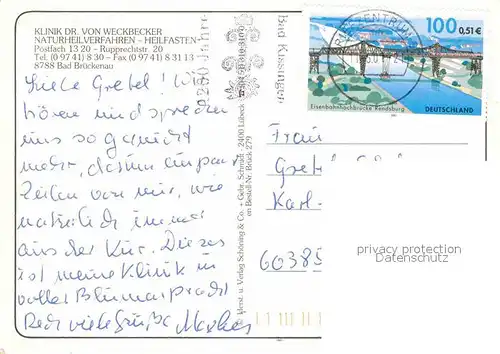 KLINIK DR. VON WECKBECKER
NATURHEILVERFAHREN - HEILFASTEN
Postfach 13 20 - Rupprechtstr. 20
Tel. (0 97 41) 8 30 - Fax (0 97 41) 8 31 13
8788 Bad Brückenau
Liebe Gretel! Wir
hören und sprechen
uns so gar nicht
mehr, darum ein paar
Zeilen von mir, wie
natürlich immer
aus der Kur. Dieses
ist meine Klinik in
voller Blumenpracht
Recht viele Grüße
Jahre
Bad Kissingen
Merst. u. Verlag Schöning & Co. + Gebr. Schmidt - 2400 Lübeck
Bestell-Nr. Brück. 279
BRIEFZENTRUM
100 0,51€
Eisenbahnhochbrücke Rendsburg
DEUTSCHLAND
Frau
Karl-
60385
privacy protection
Datenschutz